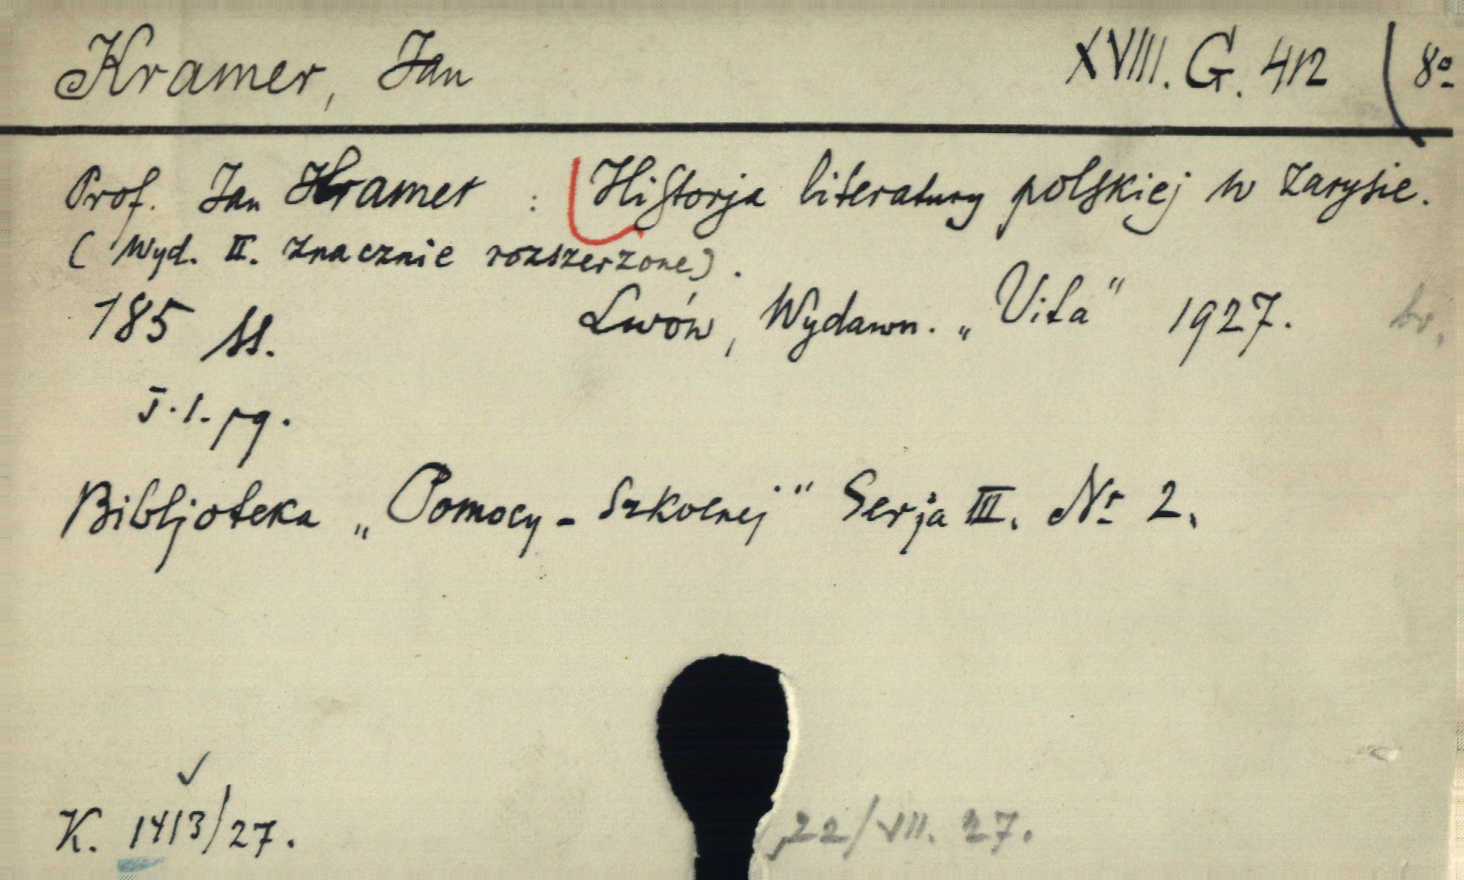 Kramer, Jan XVIII. G. 412 8º
Prof. Jan Kramer : Historja literatury polskiej w zarysie.
(Wyd. II. znacznie rozszerzone).
185 ss. Lwów, Wydawn. „Vita" 1927. br.
J. 1. pg.
Bibljoteka „Pomocy-Szkolnej" Serja III. Nr 2.
K. 1413/27. 22/VII. 27.